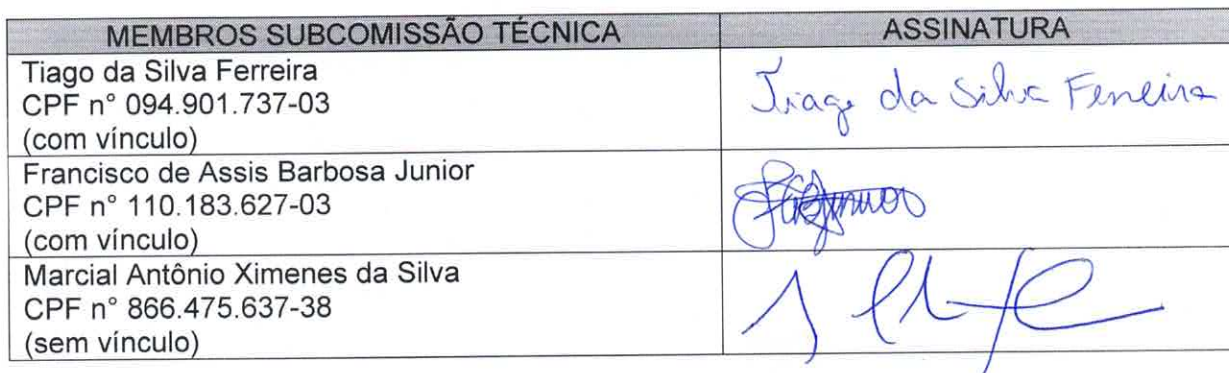 MEMBROS SUBCOMISSÃO TÉCNICA ASSINATURA
Tiago da Silva Ferreira
CPF n° 094.901.737-03
(com vínculo)
Tiago da Silva Ferreira
Francisco de Assis Barbosa Junior
CPF n° 110.183.627-03
(com vínculo)
Marcial Antônio Ximenes da Silva
CPF n° 866.475.637-38
(sem vínculo)